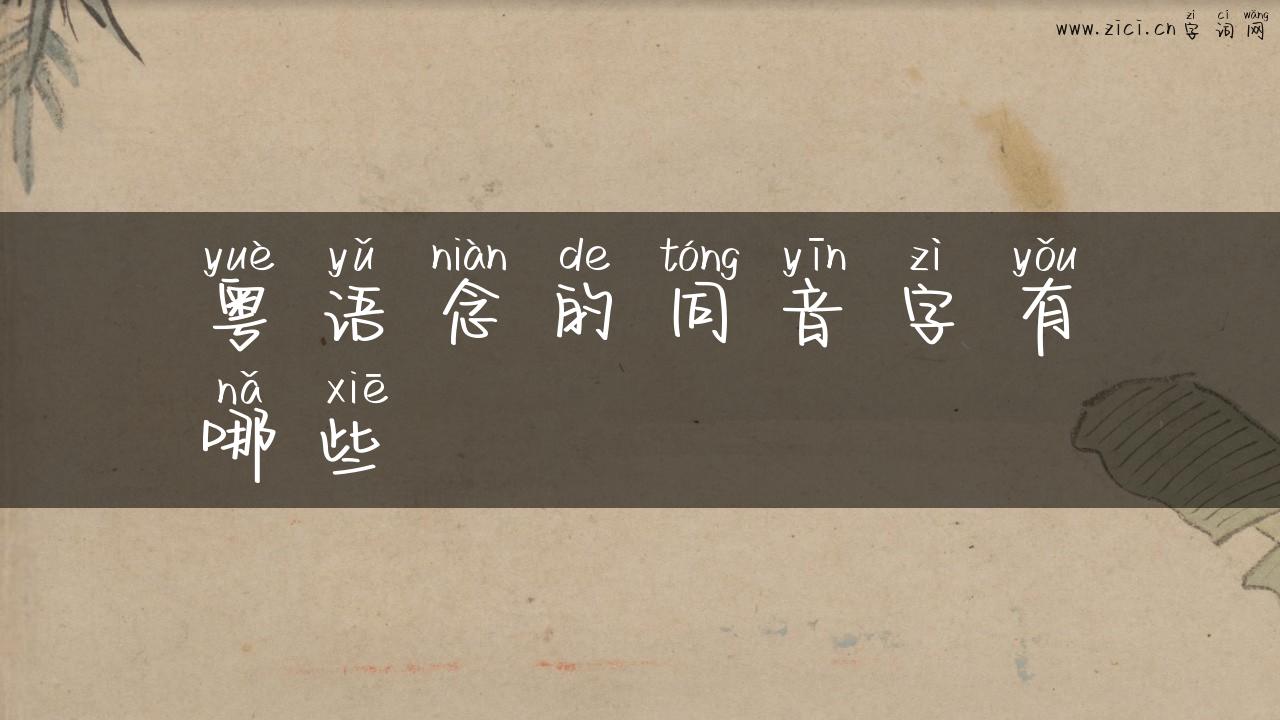 zì cí wǎng
www.zici.cn 字词网
yuè yǔ niàn de tóng yīn zì yǒu
粤语念的同音字有
nǎ xiē
哪些